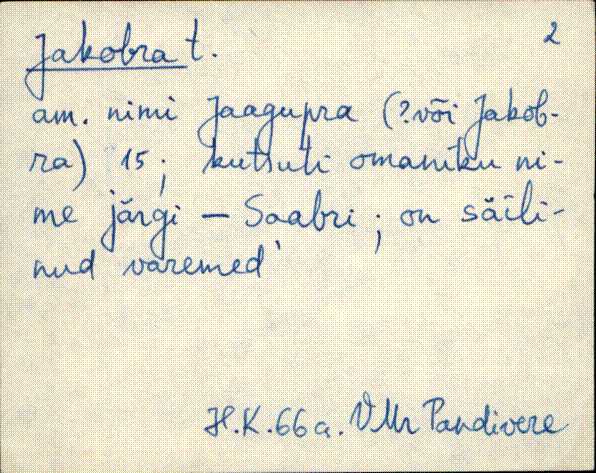 Jakobra t. 2
am. nimi Jaagupra (? või Jakob-
ra) 15; kutsuti omaniku ni-
me järgi – Saabri; on säili-
nud varemed
H.K. 66 a. VMr Pandivere